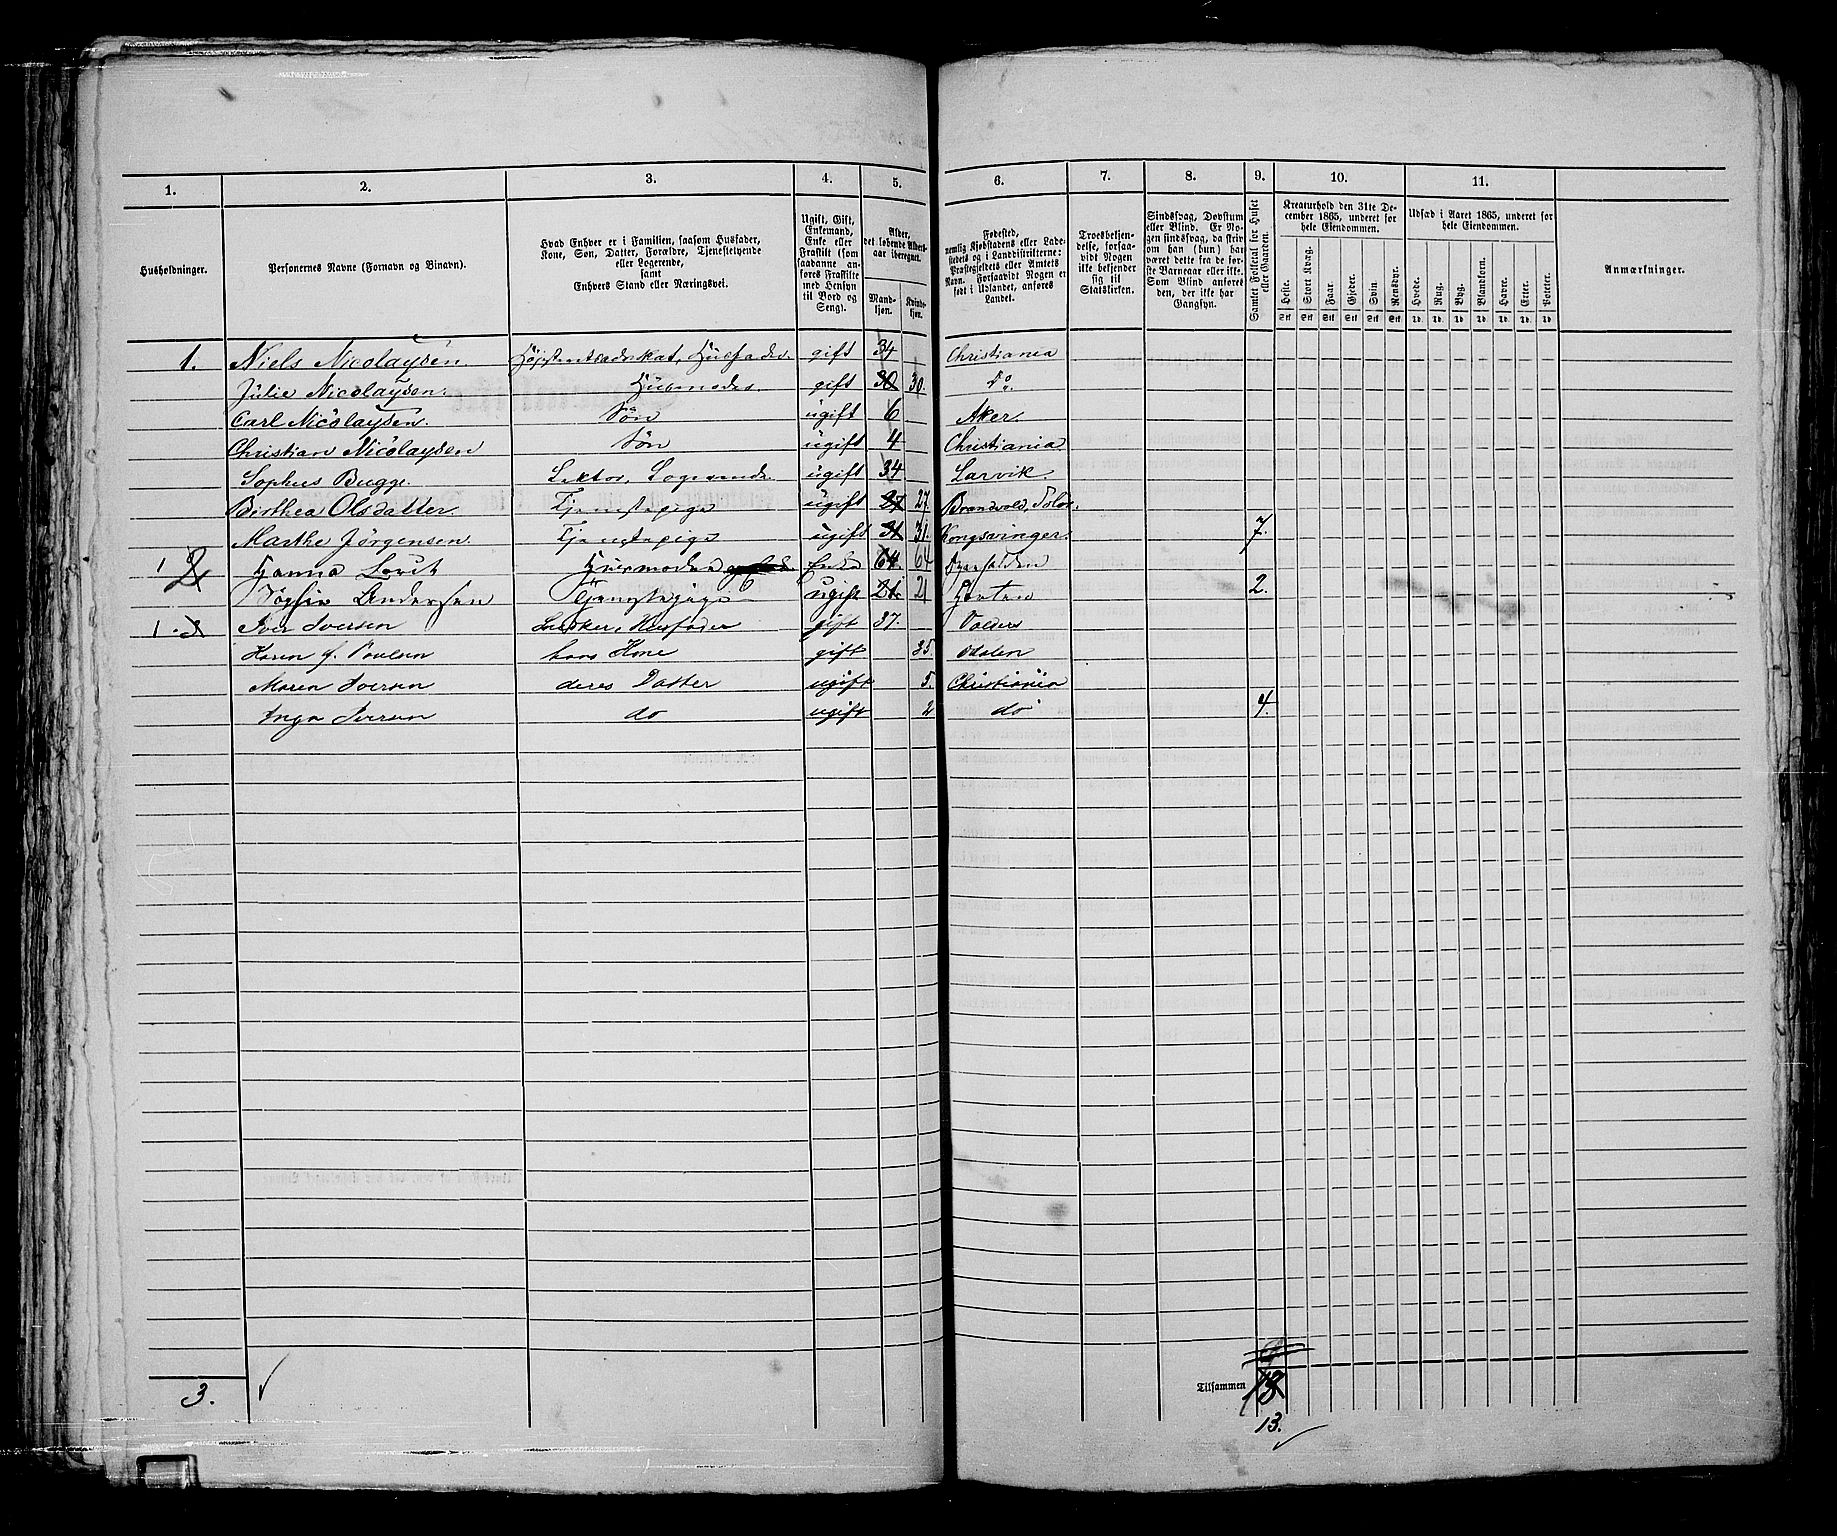 1. 2. 3. 4. 5. 6. 7. 8. 9. 10. 11.
Husholdninger.
Personernes Navne (Fornavn og Binavn).
Hvad Enhver er i Familien, saasom Husfader,
Kone, Søn, Datter, Forældre, Tjenestetyende
eller Logerende,
samt
Enhvers Stand eller Næringsvei.
Ugift, Gift,
Enkemand,
Enke eller
Fraskilt (som
saadanne an-
føres Fraskilte
med Hensyn
til Bord og
Seng).
Alder,
det løbende Alders-
aar iberegnet.
Mand-
kjøn.
Kvinde-
kjøn.
Fødested,
nemlig Kjøbstadens eller Lade-
stedets og i Landdistrikterne:
Præstegjeldets eller Amtets
Navn. Forsaavidt Nogen er
født i Udlandet, anføres
Landet.
Troesbekjen-
delse, forsaa-
vidt Nogen
ikke bekjender
sig til
Statskirken.
Sindssvag, Døvstum
eller Blind. Er No-
gen sindssvag, da skriv
om han (hun) har
været dette fra de før-
ste Barneaar eller ikke.
Som Blind anføres
den, der ikke har
Gangsyn.
Samlet Folketal for Huset
eller Gaarden.
Kreaturhold den 31te De-
cember 1865, underet for
hele Eiendommen.
Heste. Stort Kvæg. Faar. Gjeder. Svin. Rensdyr.
Stk Stk Stk Stk Stk Stk
Udsæd i Aaret 1865, underet for
hele Eiendommen.
Hvede. Rug. Byg. Blandkorn. Havre. Erter. Poteter.
Td. Td. Td. Td. Td. Td. Td.
Anmærkninger.
1. Niels Nicolaysen Husfader. gift 34 Christiania
Julie Nicolaysen. Husmoder. gift 30 30. Do.
Carl Nicolaysen. Søn ugift 6 Aker.
Christian Nicolaysen Søn ugift 4 Christiania
Sophus Bugge. Lektor, Logerende. ugift 34 Larvik.
Birthea Olsdatter. Tjenestepige ugift 27 27. Brandvold, Solør.
Marthe Jørgensen. Tjenestepige ugift 31 31. Kongsvinger. 7.
1 2 Hanna Husmoder Enke 64. 64
Sophie Andersen Tjenestepige ugift 21. 21 Horten 2.
1. 3 Iver Iversen Husfader gift 37. Valders
Karen Poulsen hans Kone gift 35. Odalen
Maren Iversen deres Datter ugift 5. Christiania
Inga Iversen do ugift 2 do 4.
3.
Tilsammen 13
13.